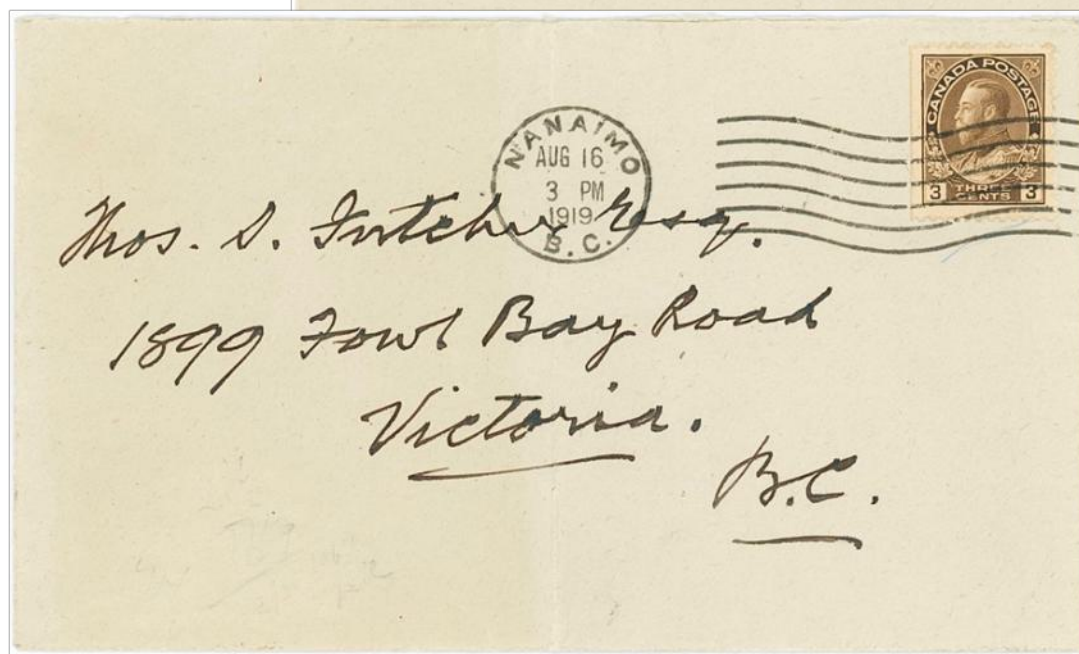 CANADA POSTAGE
3 THREE CENTS 3
NANAIMO
AUG 16
3 PM
1919
B.C.
Thos. S. Futcher Esq.
1899 Fowl Bay Road
Victoria.
B.C.